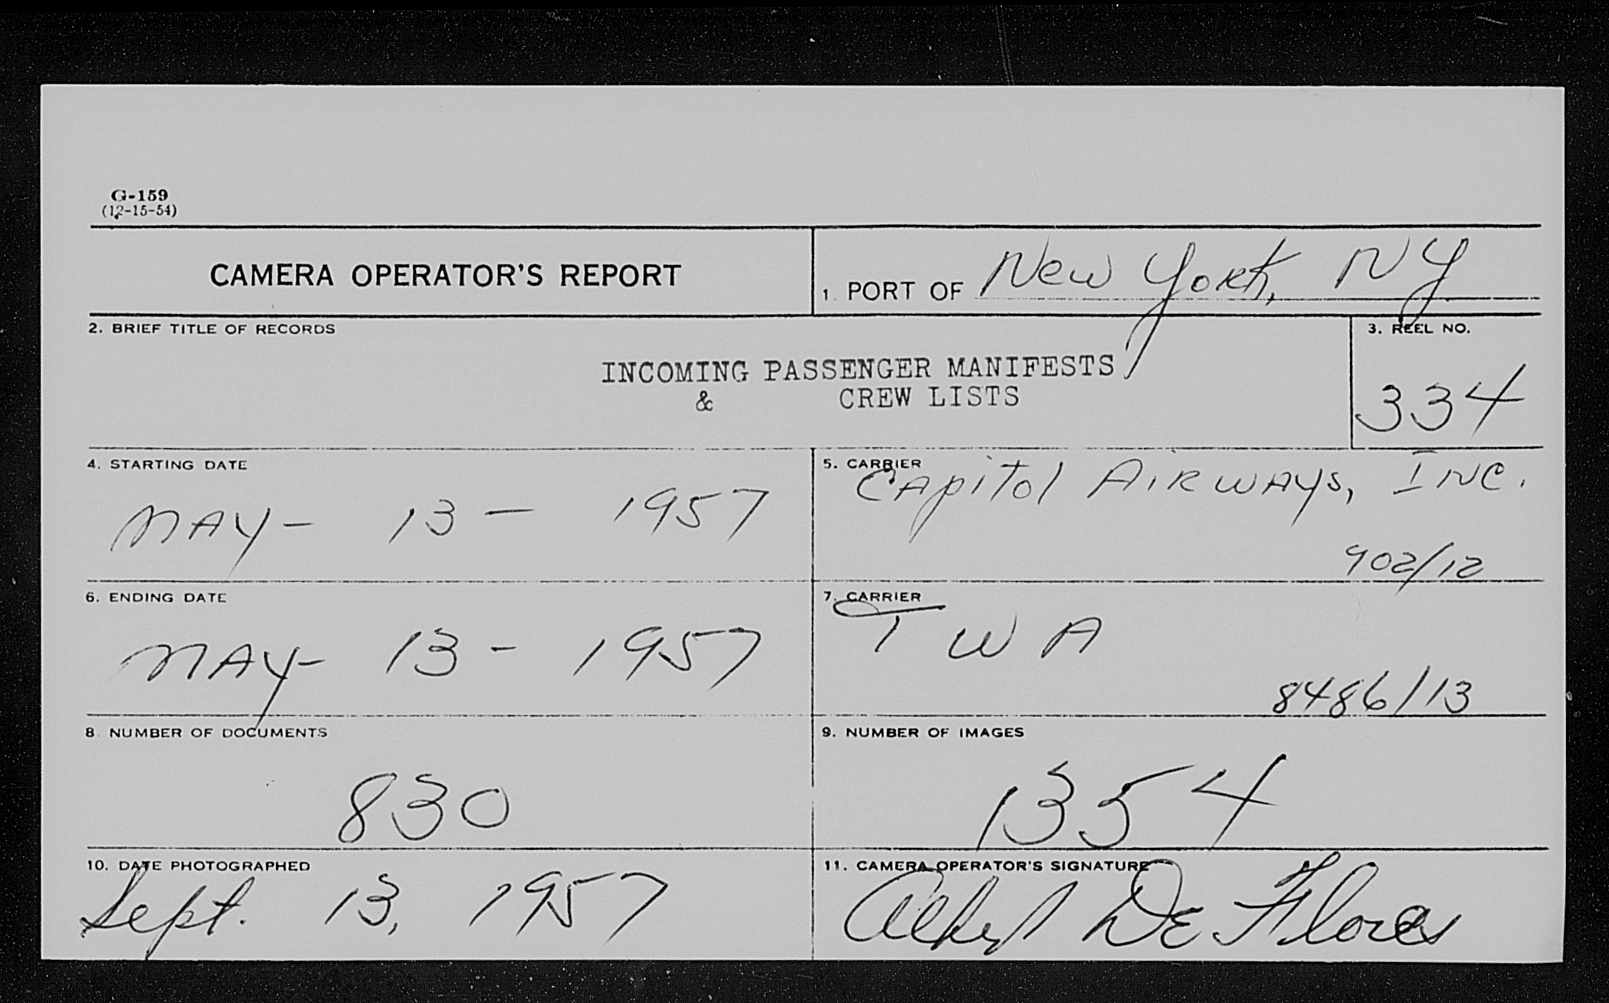 G-159
(12-15-54)
CAMERA OPERATOR'S REPORT
1. PORT OF New York, NY
2. BRIEF TITLE OF RECORDS
INCOMING PASSENGER MANIFESTS
& CREW LISTS
3. REEL NO.
334
4. STARTING DATE
MAY- 13 - 1957
5. CARRIER
CApitol AiRwAys, INC.
902/12
6. ENDING DATE
MAY- 13 - 1957
7. CARRIER
TWA
8486/13
8. NUMBER OF DOCUMENTS
830
9. NUMBER OF IMAGES
1354
10. DATE PHOTOGRAPHED
Sept. 13, 1957
11. CAMERA OPERATOR'S SIGNATURE
De Flores